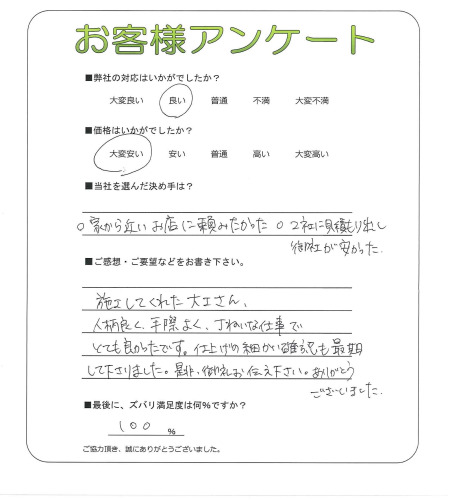 お客様アンケート
■弊社の対応はいかがでしたか？
大変良い 良い 普通 不満 大変不満
■価格はいかがでしたか？
大変安い 安い 普通 高い 大変高い
■当社を選んだ決め手は？
○ 家から近いお店に頼みたかった ○ 2社に見積もり出し
御社が安かった.
■ご感想・ご要望などをお書き下さい。
施工してくれた大工さん、
人柄良く、手際よく、丁ねいな仕事で
とても良かったです。仕上げの細かい確認も最期
して下さりました。是非、御礼お伝え下さい。ありがとう
ございました.
■最後に、ズバリ満足度は何％ですか？
100 %
ご協力頂き、誠にありがとうございました。